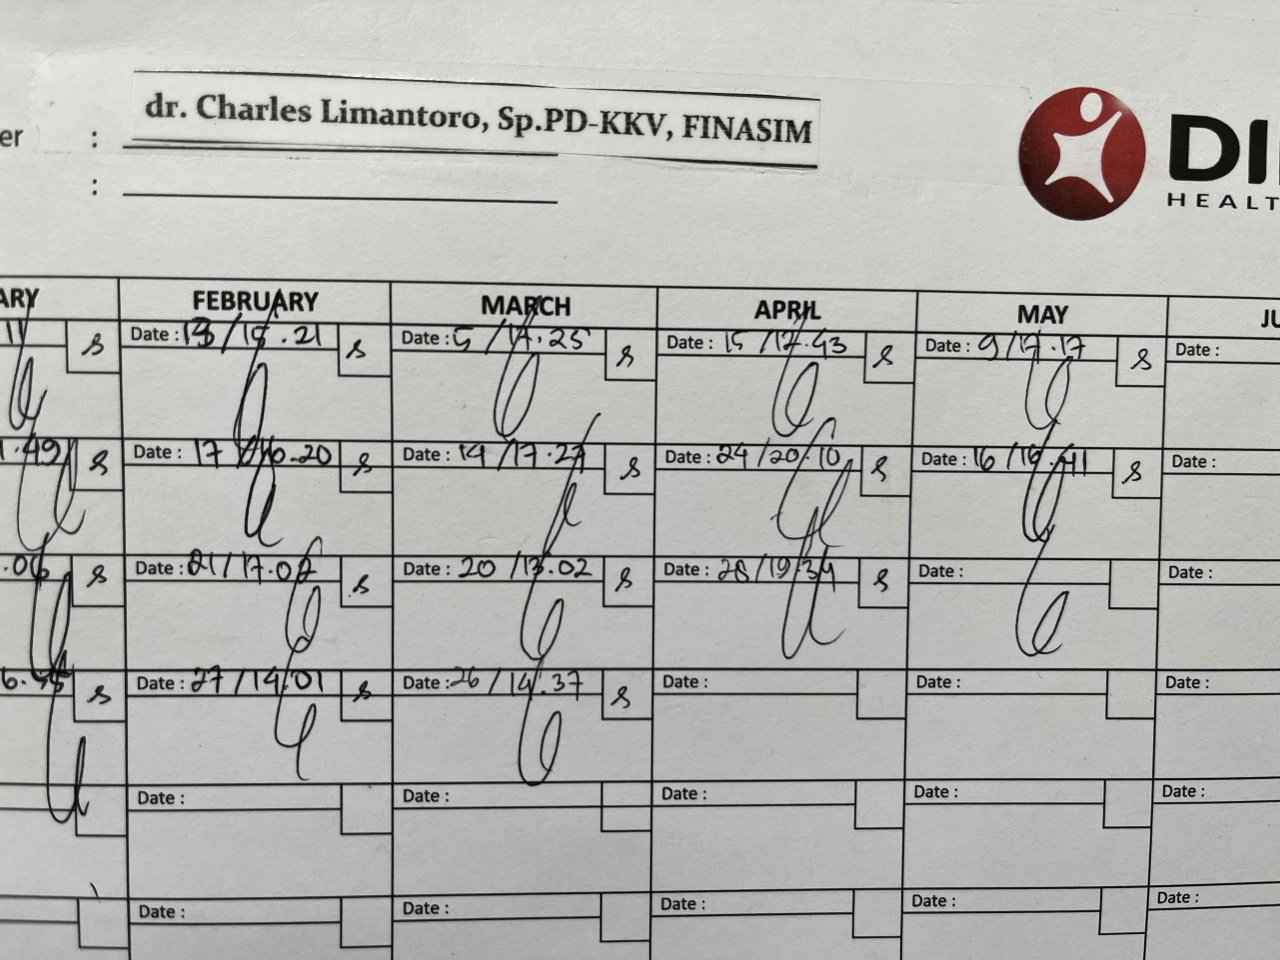 dr. Charles Limantoro, Sp.PD-KKV, FINASIM
er :
:
DI
HEALT
ARY FEBRUARY MARCH APRIL MAY JU
11 S Date : 13 / 15.21 S Date : 5 / 17.25 S Date : 15 / 17.43 S Date : 9/17.17 S Date :
.49 S Date : 17 / 16.20 S Date : 14 /17.27 S Date : 24 /20.10 S Date : 16 / S Date :
.06 S Date : 21/17.02 S Date : 20 /13.02 S Date : 28/19.34 S Date : Date :
6. S Date : 27 /14.01 S Date : 26 / 14.37 S Date : Date : Date :
Date : Date : Date : Date : Date :
Date : Date : Date : Date : Date :